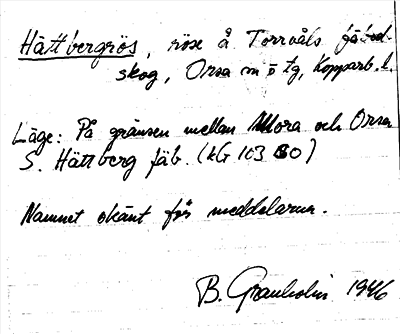 Hättbergrös, röse å Torrvåls fäbod-
skog, Orsa sn o tg, Kopparb. l.
Läge: På gränsen mellan Mora och Orsa
S. Hättberg fäb. (kG 103 SO)
Namnet okänt för meddelaren.
B. Granholm 1946